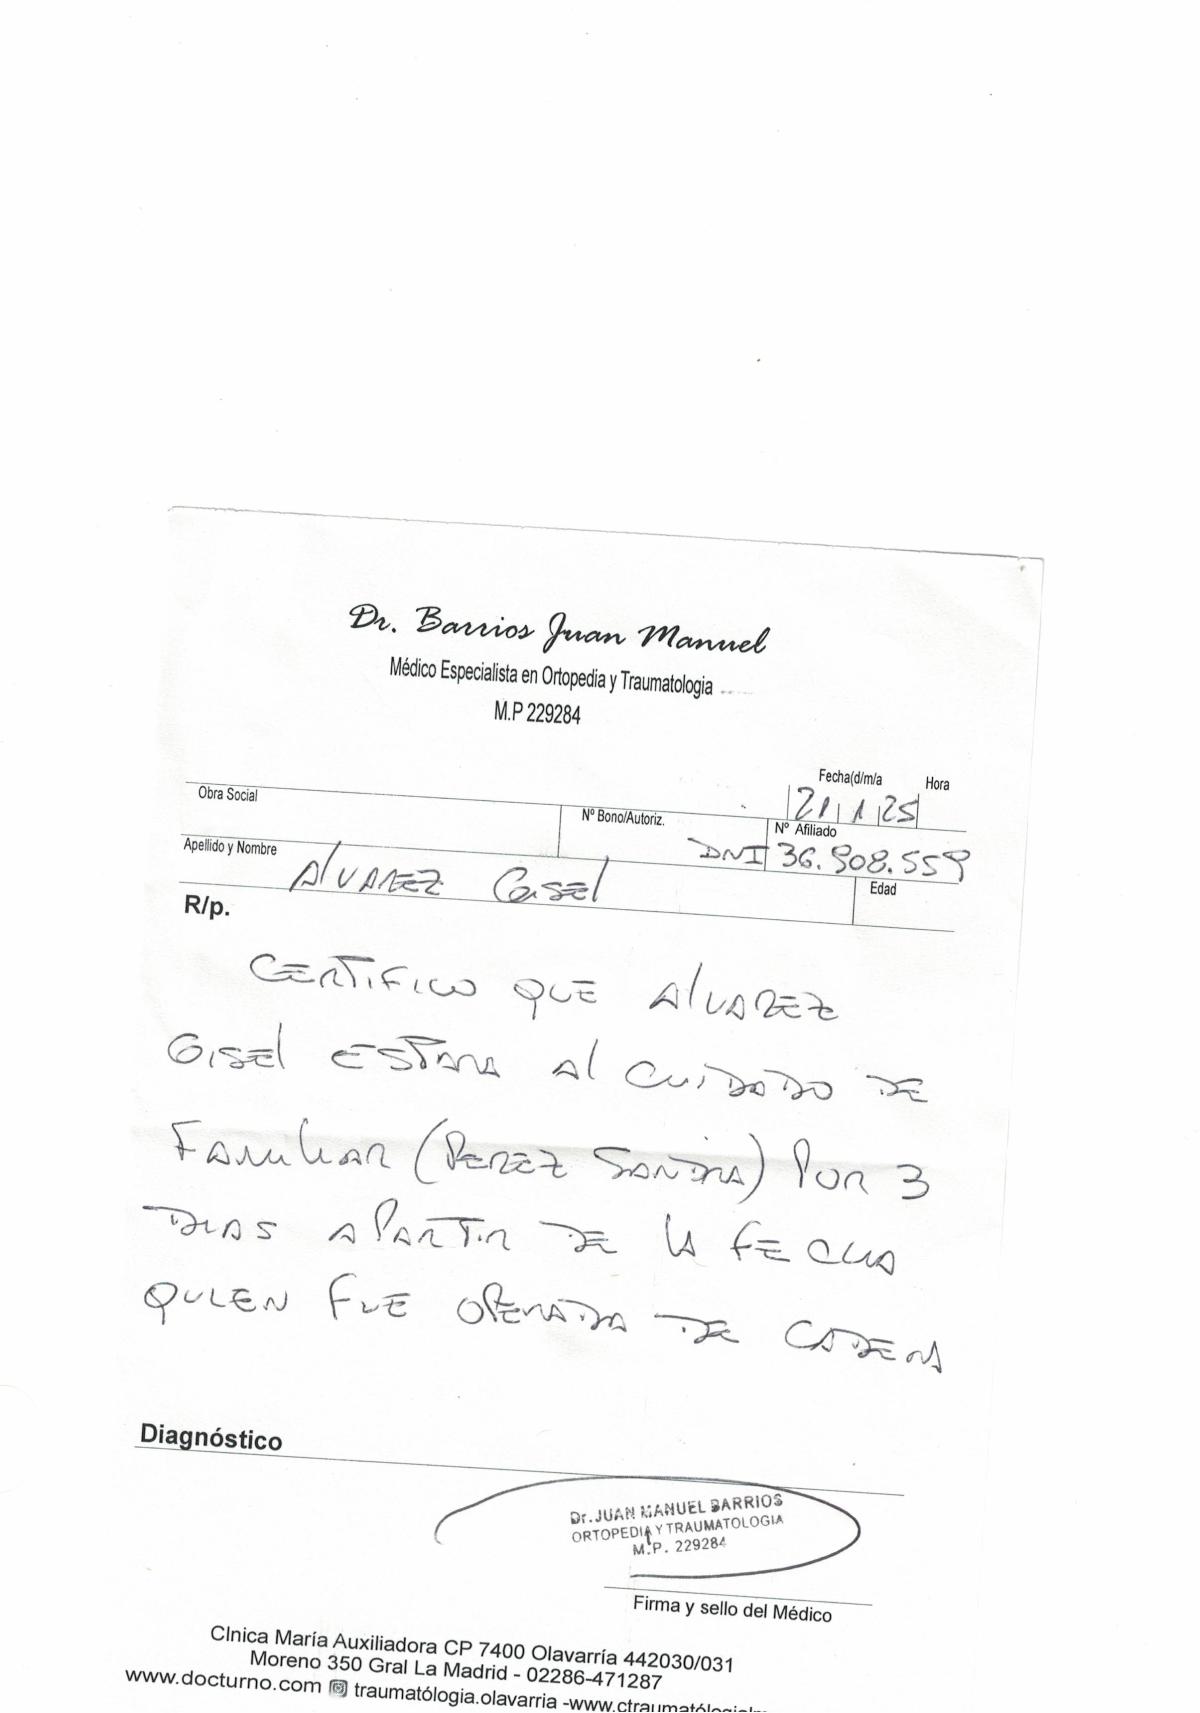 Dr. Barrios Juan Manuel
Médico Especialista en Ortopedia y Traumatologia
M.P 229284
Fecha(d/m/a Hora
21 1 25
Obra Social
Nº Bono/Autoriz.
Nº Afiliado
DNI 36.908.559
Apellido y Nombre
Alvarez Gisel
Edad
R/p.
CERTIFICO QUE Alvarez
Gisel ESTARA Al CUIDADO DE
Familiar (PEREZ SANDRA) POR 3
DIAS A PARTIR DE LA FECHA
QUIEN FUE OPERADA DE CADERA
Diagnóstico
Dr. JUAN MANUEL BARRIOS
ORTOPEDIA Y TRAUMATOLOGIA
M.P. 229284
Firma y sello del Médico
Clnica María Auxiliadora CP 7400 Olavarría 442030/031
Moreno 350 Gral La Madrid - 02286-471287
www.docturno.com traumatólogia.olavarria -